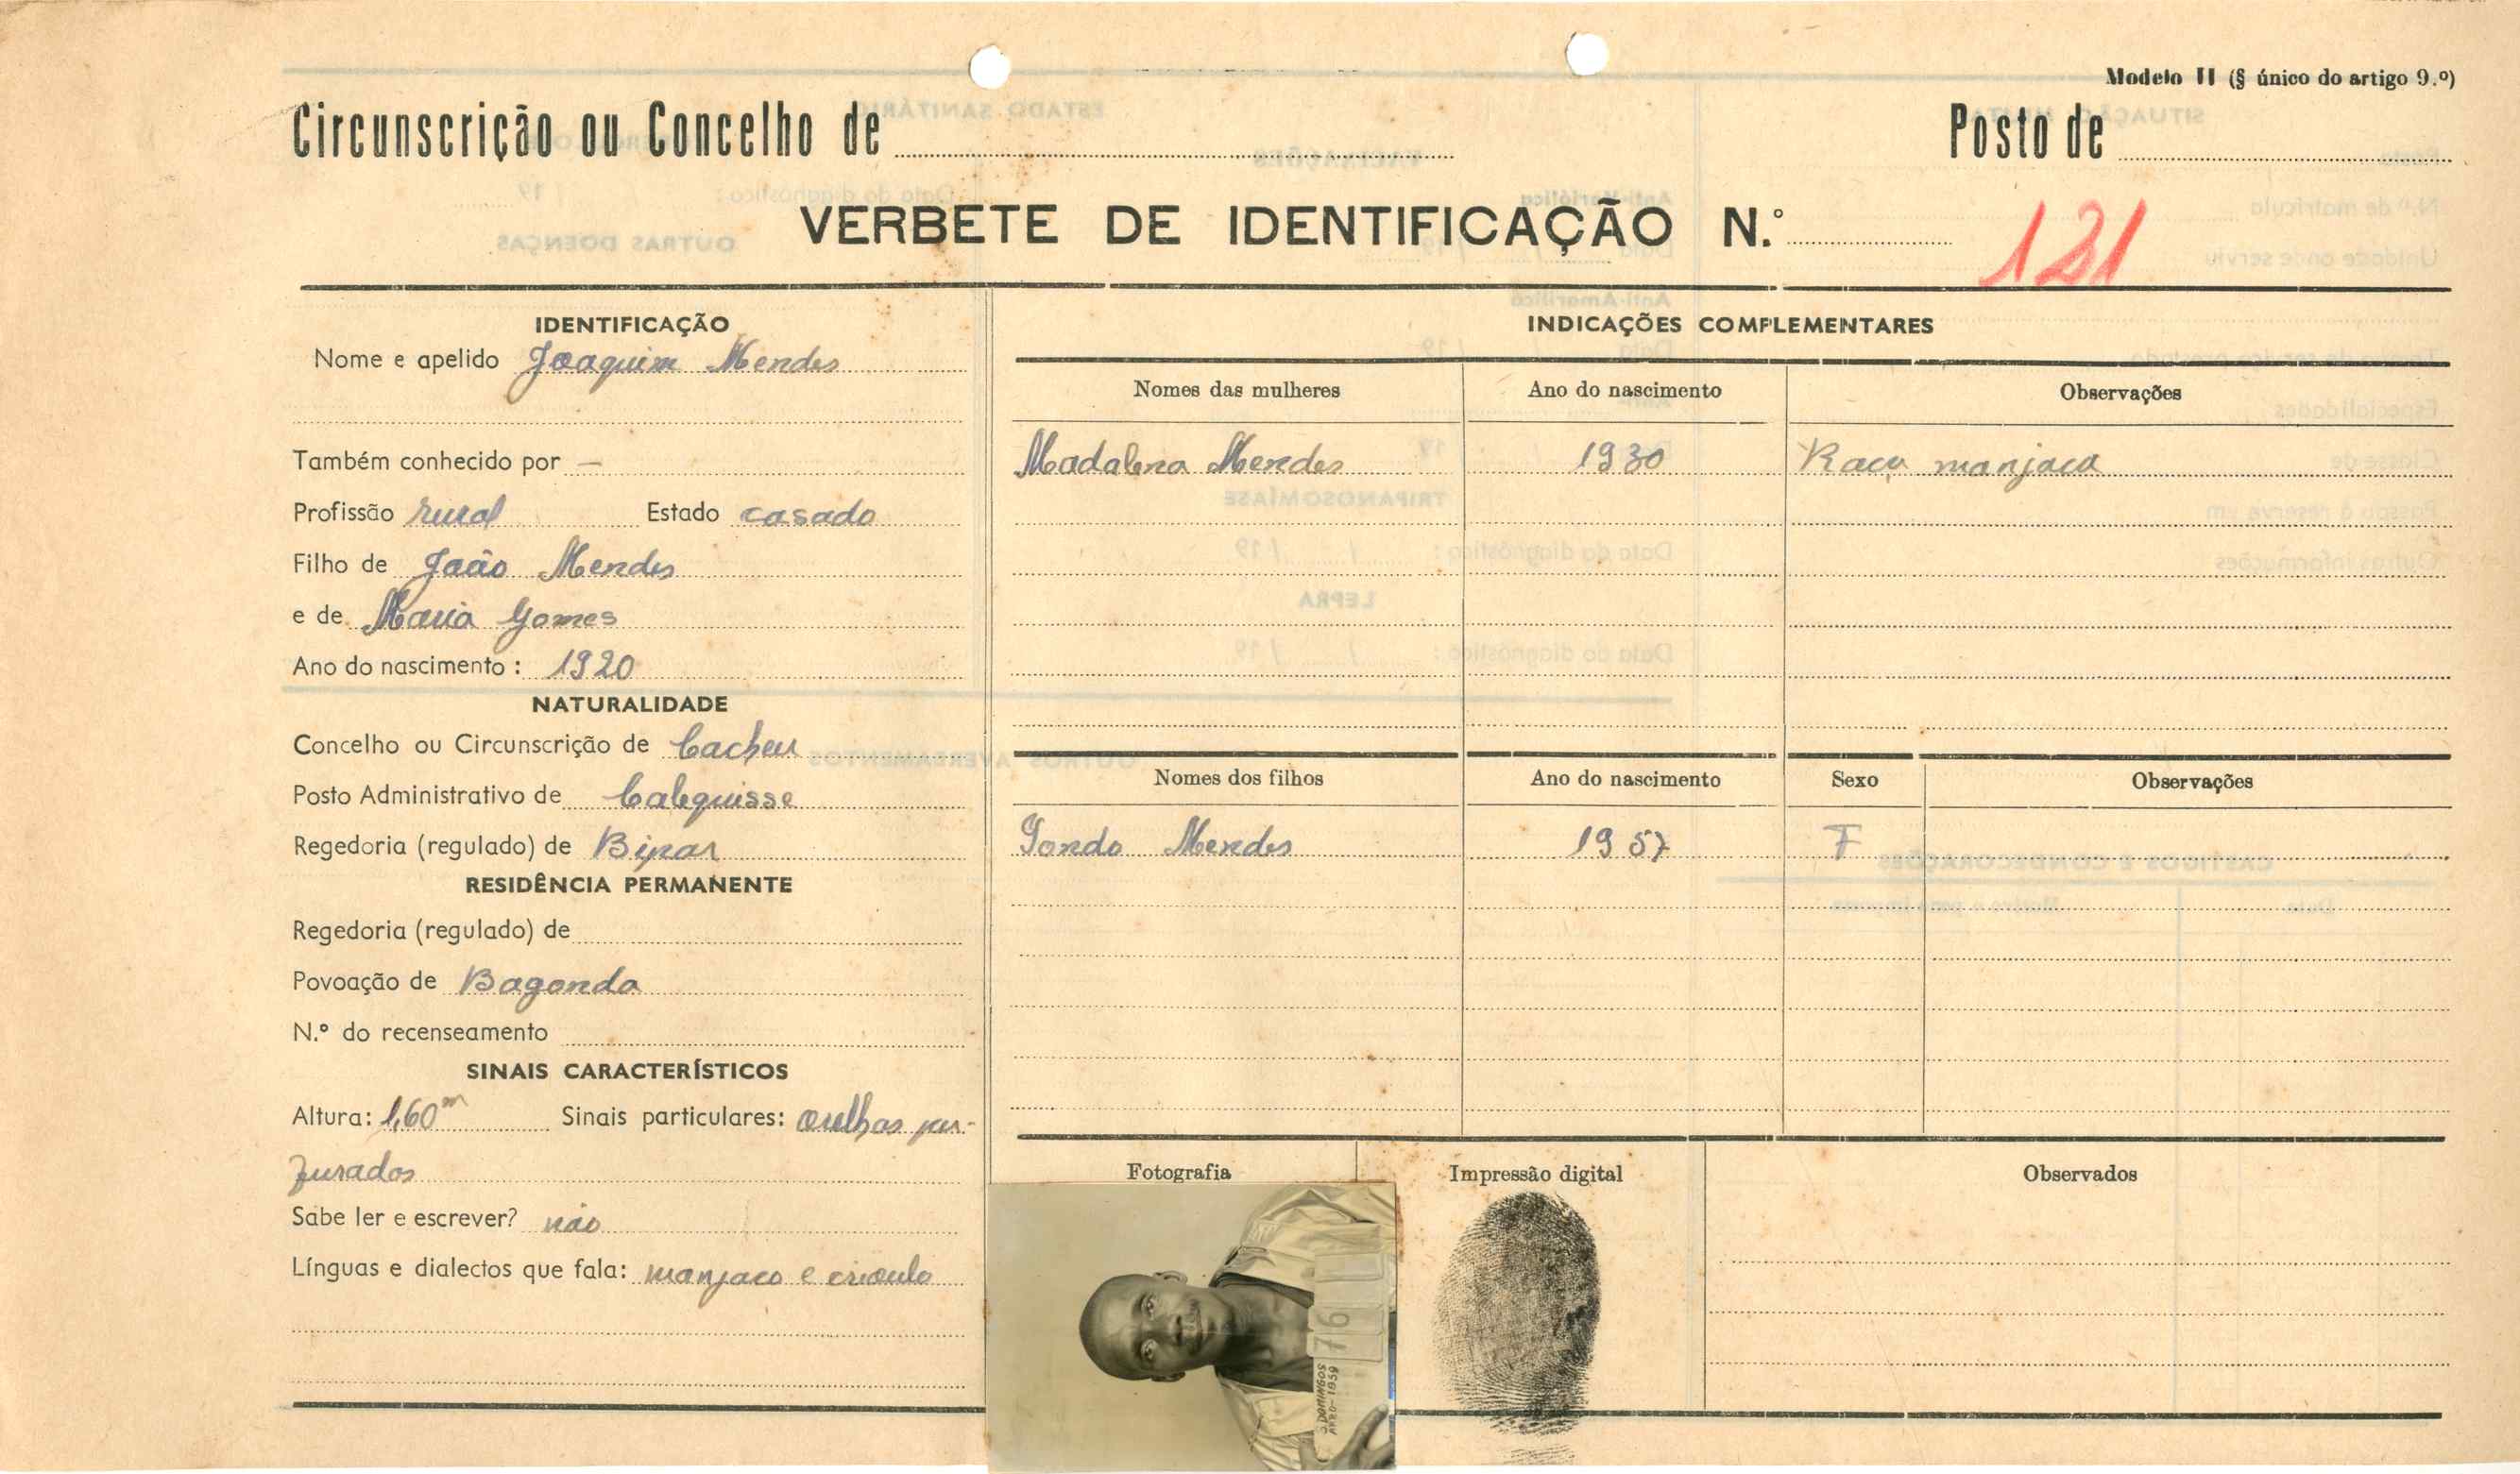 Modelo II (§ único do artigo 9.º)
Circunscrição ou Concelho de
Posto de
VERBETE DE IDENTIFICAÇÃO N.º 121
IDENTIFICAÇÃO
Nome e apelido Joaquim Mendes
Também conhecido por —
Profissão rural Estado casado
Filho de João Mendes
e de Maria Gomes
Ano do nascimento: 1920
NATURALIDADE
Concelho ou Circunscrição de Cacheu
Posto Administrativo de Calequisse
Regedoria (regulado) de
RESIDÊNCIA PERMANENTE
Regedoria (regulado) de
Povoação de Bagonda
N.º do recenseamento
SINAIS CARACTERÍSTICOS
Altura: 1,60m Sinais particulares: orelhas per-
furados
Sabe ler e escrever? não
Línguas e dialectos que fala: manjaco e crioulo
INDICAÇÕES COMPLEMENTARES
Nomes das mulheres Ano do nascimento Observações
Madalena Mendes 1930 Raça manjaca
Nomes dos filhos Ano do nascimento Sexo Observações
Mendes 1957 F
Fotografia Impressão digital Observados
76
S. DOMINGOS
1959